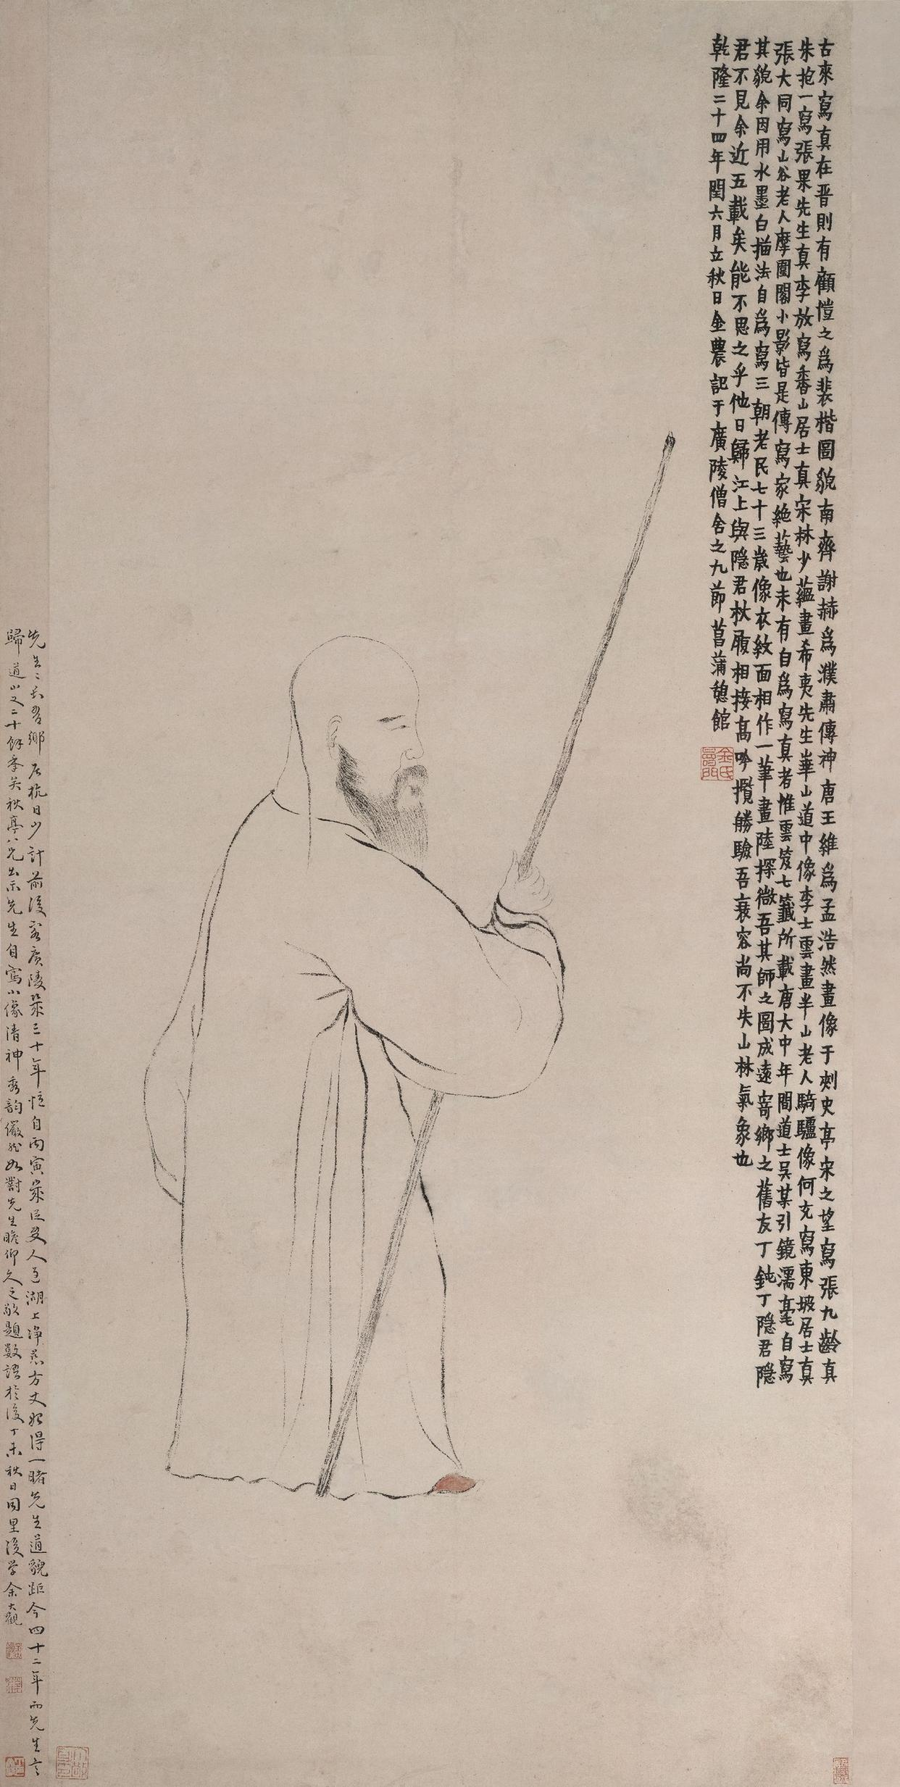 古來寫真在晉則有顧愷之爲裴楷圖貌南齊謝赫爲濮肅傳神唐王維爲孟浩然畫像于刺史亭宋之望寫張九齡真
朱抱一寫張果先生真李放寫香山居士真宋林少蘊畫希夷先生華山道中像李士雲畫半山老人騎驢像何充寫東坡居士真
張大同寫山谷老人摩圍閣小影皆是傳寫家絶藝也未有自爲寫真者惟雲笈七籤所載唐大中年間道士吳某引鏡濡毫自寫
其貌余因用水墨白描法自爲寫三朝老民七十三歲像衣紋面相作一筆畫陸探微吾其師之圖成遠寄鄉之舊友丁鈍丁隱君隱
君不見余近五載矣能不思之乎他日歸江上與隱君杖履相接高吟攬勝驗吾衰容尚不失山林氣象也
乾隆二十四年閏六月立秋日金農記于廣陵僧舍之九節菖蒲憩館
金氏
先生居杭日少計前後客廣陵幾三十年憶自丙寅湖上淨慈方丈始得一睹先生道貌距今四十二年而先生之
歸道山又二十餘年矣秋亭八兄出示先生自寫小像清神秀韻儼然如對先生瞻仰久之敬題數語於後丁未秋日同里後學余大觀